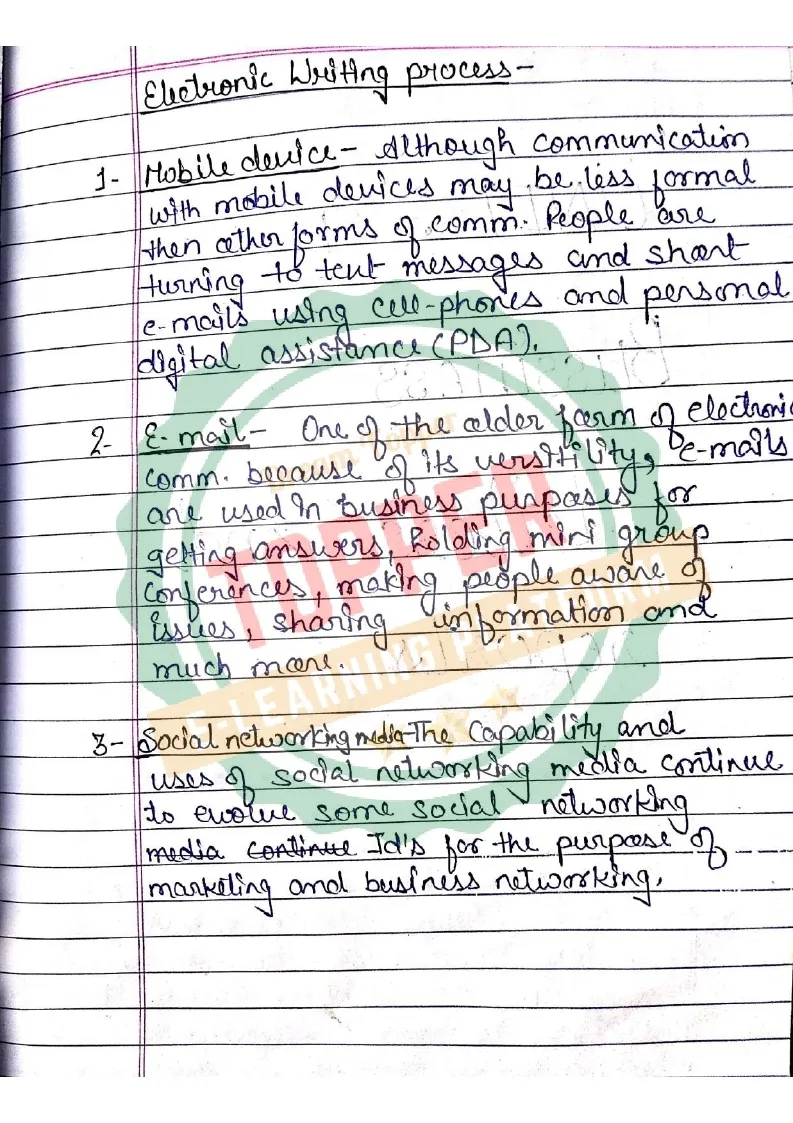 Electronic Writing process-
1- Mobile device - Although communication
with mobile devices may be less formal
then other forms of comm. People are
turning to text messages and short
e-mails using cell-phones and personal
digital assistance (PDA).
2- E-mail - One of the older form of electronic
comm. because of its verstility, e-mails
are used in business purposes for
getting answers, holding mini group
conferences, making people aware of
issues, sharing information and
much more.
3- Social networking media - The Capability and
uses of social networking media continue
to evolve some social networking
media continue Id's for the purpose of
marketing and business networking.
TOPPER
E-LEARNING PLATFORM